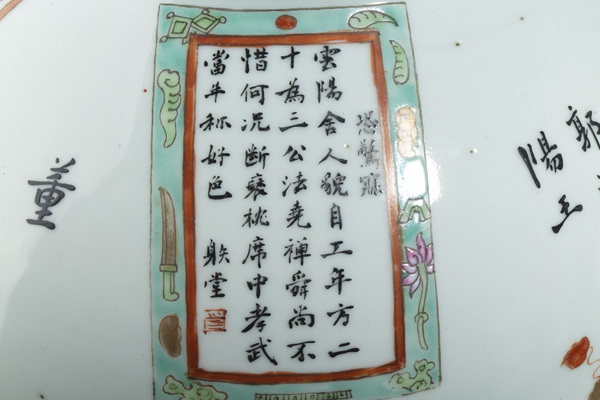 郭
陽王
恐驚寐
雲陽舍人貌自工年方二
十為三公法堯禪舜尚不
惜何況斷褎桃席中孝武
當年称好色 堂
董